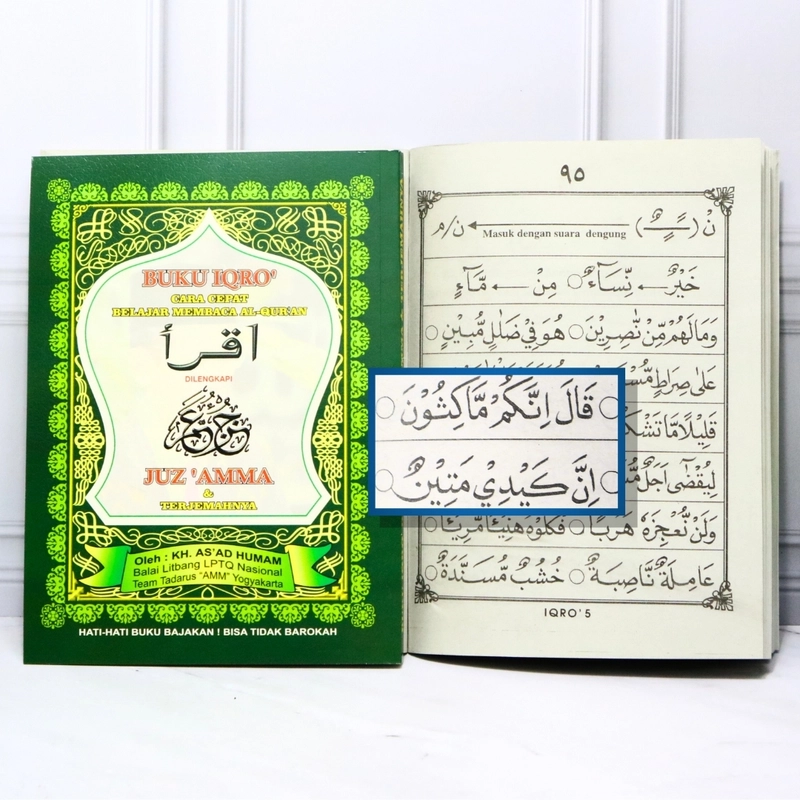 BUKU IQRO'
CARA CEPAT
BELAJAR MEMBACA AL-QUR'AN
اقرأ
DILENGKAPI
جزء عم
JUZ 'AMMA
&
TERJEMAHNYA
Oleh : KH. AS'AD HUMAM
Balai Litbang LPTQ Nasional
Team Tadarus "AMM" Yogyakarta
HATI-HATI BUKU BAJAKAN ! BISA TIDAK BAROKAH
٩٥
نْ (ـًٍـٌ) ← ن/م
Masuk dengan suara dengung
خَيْرٌ ← نِّسَآءٌ ○ مِنْ ← مَّآءٍ
وَمَالَهُمْ مِّنْ نّٰصِرِيْنَ ○ هُوَ فِيْ ضَلٰلٍ مُّبِيْنٍ ○
عَلٰى صِرَاطٍ
قَلِيْلًا مَّا
قَالَ اِنَّكُمْ مَّاكِثُوْنَ
اِنَّ كَيْدِيْ مَتِيْنٌ
لِيُقْضٰٓى اَجَلٌ
وَلَنْ نُّعْجِزَهٗ هَرَبًا ○ فَكُلُوْهُ هَنِيْٓـًٔا مَّرِيْٓـًٔا ○
عَامِلَةٌ نَّاصِبَةٌ ○ خُشُبٌ مُّسَنَّدَةٌ ○
IQRO' 5